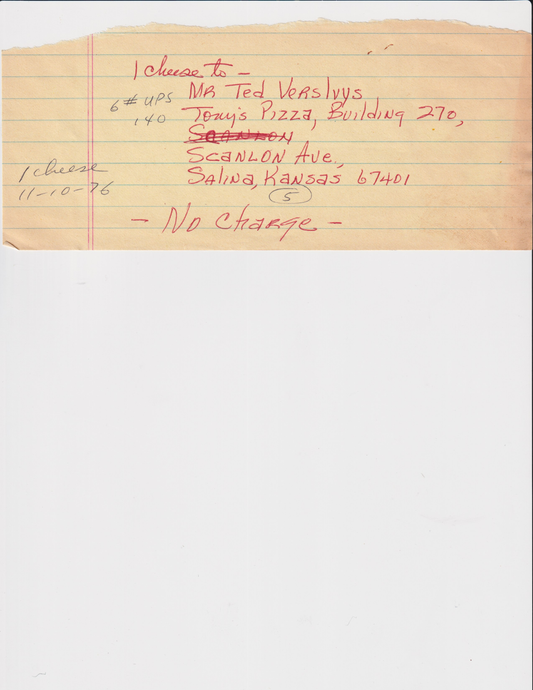 1 cheese to -
Mr Ted Versluys
6# UPS
Tony's Pizza, Building 270,
140
Scanlon
Scanlon Ave,
1 cheese
Salina, Kansas 67401
11-10-76
5
- No Charge -